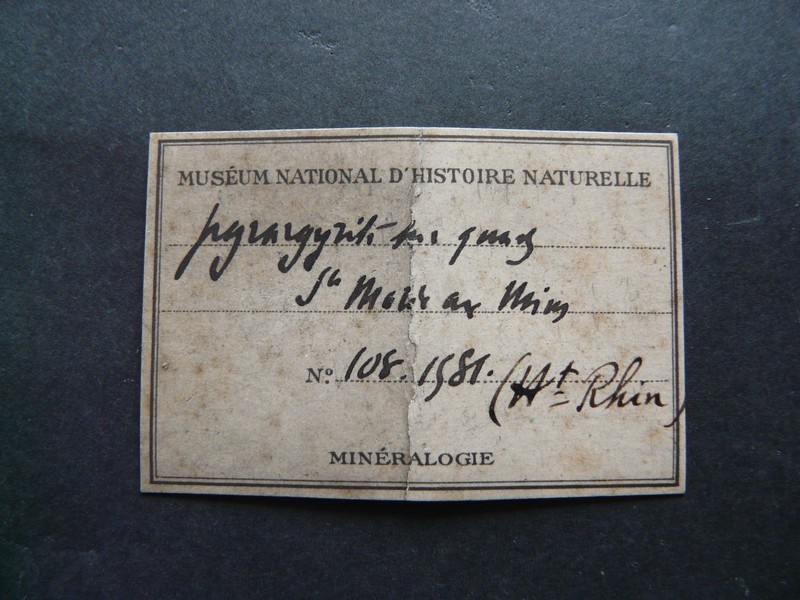 MUSÉUM NATIONAL D'HISTOIRE NATURELLE
pyrargyrite sur quartz
Ste Marie aux Mines
No. 108.1981.
(Ht Rhin)
MINÉRALOGIE